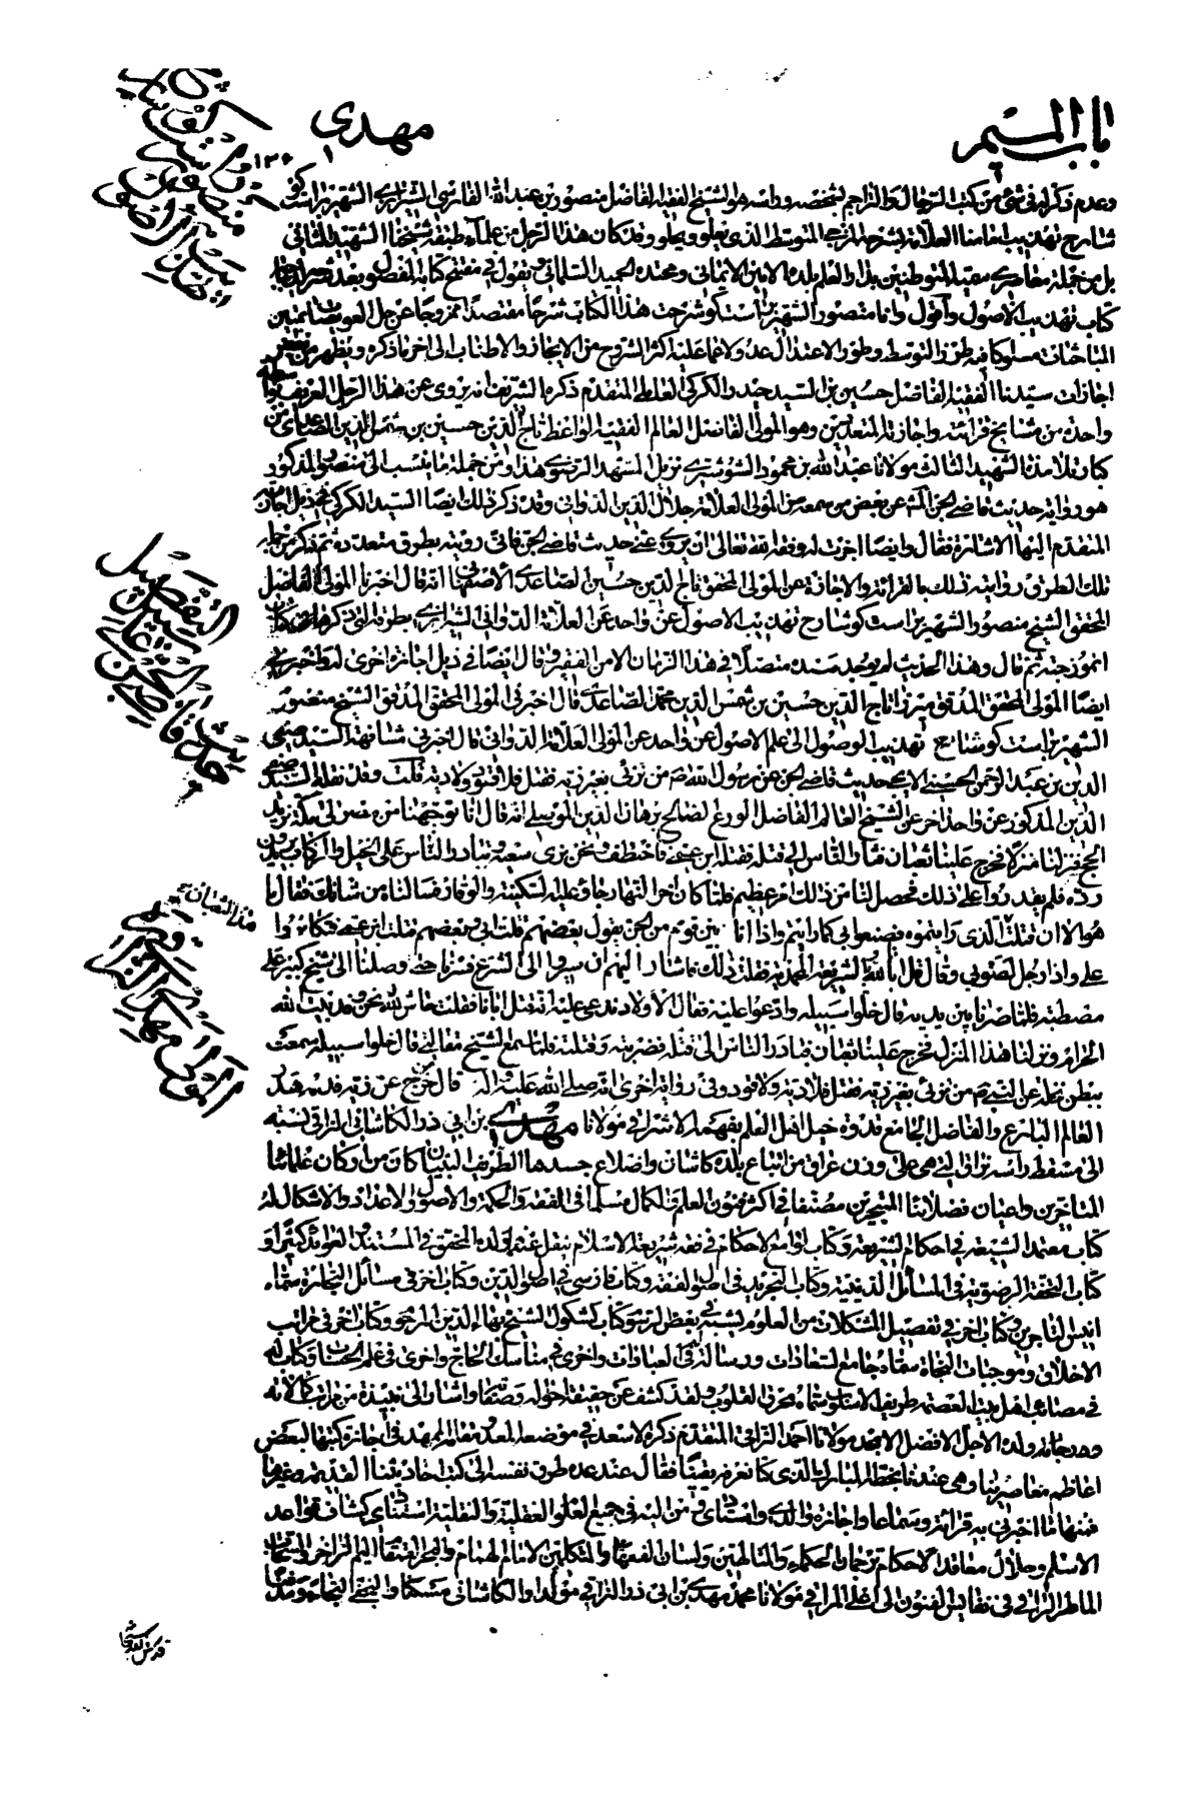 باب الميم
مهدي
وعدم ذكر له في شئ من كتب الرجال والتراجم لشخصه ورأسه هو الشيخ الفقيه الفاضل منصور بن عبد الله الفارسي الشيرازي الشهير براست كو
شارح تهذيب امامنا العلامة بشرحه المزجي المتوسط الذي يعلو ويحلو وقد كان هذا الرجل من علماء طبقة شيخنا الشهيد الثاني
بل من جملة معاصريه
كتاب تهذيب الاصول وأقول وانا منصور الشهير براست كو شرحت هذا الكتاب شرحا مقتصدا ممزوجا عن حل العويصات
المباحثات سلوكا فيه طور التوسط وطور الاعتدال عدولا عما عليه اكثر الشروح من الايجاز والاطناب الى اخر ما ذكره ويظهر من بعض
اجازات سيدنا الفقيه الفاضل حسين بن السيد حيدر الكركي العاملي المتقدم ذكره الشريف انه يروي عن هذا الرجل العريف بواسطة
واحدة من مشايخ قرائته واجازته المتعددين وهو المولى الفاضل العالم الفقيه الواعظ تاج الدين حسين بن شمس الدين الصاعدي من
كبار تلامذة الشهيد الثالث مولانا عبد الله بن محمود الشوشتري نزيل المشهد الرضوي هذا ومن جملة ما ينسب الى منصور المذكور
هو روايته حديث قاضي الجن المشهور عن بعض من سمعه من المولى العلامة جلال الدين الدواني وقد ذكر ذلك ايضا السيد الكركي في ذيل اجازته
المتقدم اليها الاشارة فقال وايضا اجزت له وفقه الله تعالى ان يروي عني حديث قاضي الجن فاني رويته بطرق متعددة ثم ذكر من جملة
تلك الطرق روايته ذلك بالقرائة والاجازة عن المولى المحقق تاج الدين حسين الصاعدي الاصفهاني انه قال اخبرنا المولى الفاضل
المحقق الشيخ منصور الشهير براست كو شارح تهذيب الاصول عن واحد عن العلامة الدواني الشيرازي بطرقه التي ذكرها في كتاب
انموزجه ثم قال وهذا الحديث لم يوجد مسنده متصلا في هذا الزمان الا من الفقير وقال ايضا في ذيل اجازة اخرى له واخبرني
ايضا المولى المحقق المدقق ميرزا تاج الدين حسين بن شمس الدين محمد الصاعدي قال اخبرني المولى المحقق المدقق الشيخ منصور
الشهير براست كو شارح تهذيب الوصول الى علم الاصول عن واحد عن المولى العلامة الدواني قال اخبرني مشافهة السيد صفي
الدين بن عبد الرحمن الحسيني الايجي حديث قاضي الجن عن رسول الله ص من تزيى بغير زيه فقتل فلا قود ولا دية قلت وقد نقله السيد صفي
الدين المذكور عن واحد اخر عن الشيخ العالم الفاضل الورع الصالح برهان الدين الموصلي انه قال انا توجهنا من مصر الى مكة نريد
الحج فنزلنا منزلا فخرج علينا ثعبان فثار الناس الى قتله فقتله ابن عمي فاختطف ونحن نرى سعيه وتبادر الناس على الخيل والركاب يريدون
رده فلم يقدروا على ذلك فحصل لنا من ذلك امر عظيم فلما كان اخر النهار جاء وعليه السكينة والوقار فسالناه ما شانك فقال ما
هو الا ان قتلت الذي رايتموه فصنعوا بي كما رايتم واذا انا بين قوم من الجن يقول بعضهم قتلت ابي وبعضهم قتلت ابن عمي فتكاثروا
علي واذا رجل لصق بي وقال قل انا بالله وبالشريعة المحمدية فقلت ذلك فاشار اليهم ان سيروا الى الشرع فسرنا حتى وصلنا الى شيخ كبير على
مصطبة فلما صرنا بين يديه قال خلوا سبيله وادعوا عليه فقال الاولاد ندعي عليه انه قتل ابانا فقلت حاش لله نحن وفد بيت الله
الحرام ونزلنا هذا المنزل فخرج علينا ثعبان فتبادر الناس الى قتله فضربته وقتلته فلما سمع الشيخ مقالتي قال خلوا سبيله سمعت
ببطن نخلة عن النبي ص من تزيى بغير زيه فقتل فلا دية ولا قود وفي رواية اخرى انه صلى الله عليه واله قال من خرج عن زيه فدمه هدر
العالم البارع والفاضل الجامع قدوة خيل اهل العلم بفهمه الاشراقي مولانا مهدي بن ابي ذر الكاشاني النراقي نسبة
الى مسقط راسه نراق التي هي على وزن عراق من اتباع بلدة كاشان واضلاع جسدها الظريف البنيان كان من اركان علمائنا
المتاخرين واعيان فضلائنا المتبحرين مصنفا في اكثر فنون العلم والكمال مسلما في الفقه والحكمة والاصول والاعداد والاشكال له
كتاب معتمد الشيعة في احكام الشريعة وكتاب لوامع الاحكام في فقه شريعة الاسلام ينقل عنهما ولده المحقق في المستند والعوائد كثيرا و
كتاب التحفة الرضوية في المسائل الدينية وكتاب التجريد في اصول الفقه وكتاب فارسي في اصول الدين وكتاب اخر في مسائل التجارة سماه
انيس التاجرين وكتاب اخر في تفصيل المشكلات من العلوم يشبه في بعض الرسوم كتاب كشكول الشيخ بهاء الدين المرحوم وكتاب اخر في مراتب
الاخلاق وموجبات النجاة سماه جامع السعادات ورسالة في العبادات واخرى في مناسك الحاج واخرى في علم الحساب وكتاب له
في مصائب اهل بيت العصمة طريف الاسلوب سماه محرق القلوب ولقد كشف عن حقيقة احواله وصفها واشار الى نبذة من مراتب كمالاته
ودرجاته ولده الاجل الافضل الامجد مولانا احمد النراقي المتقدم ذكره الاسعد في موضعه المعد مقام المهد في اجازة كتبها لبعض
اعاظم معاصرينا وهي عندنا بخطه المبارك الذي كنا نعرفه يقينا فقال عند عده طرق نفسه الى كتب احاديثنا القديمة وغيرها
فمنها ما اخبرني به قرائة وسماعا واجازة والدي واستادي ومن اليه في جميع العلوم العقلية والنقلية استنادي كشاف قواعد
الاسلام وحلال معاقد الاحكام ترجمان الحكماء والمتالهين ولسان الفقهاء والمتكلمين الامام الهمام والبحر القمقام اليم الزاخر والسحاب
الماطر الراقي في نفايس الفنون الى اعلى المراقي مولانا محمد مهدي بن ابي ذر النراقي مولدا والكاشاني مسكنا والنجفي التجاء ومدفنا
حديث قاضي الجن على سبيل التفصيل
هذا الثعبان
المولى مهدي النراقي
قدس الله